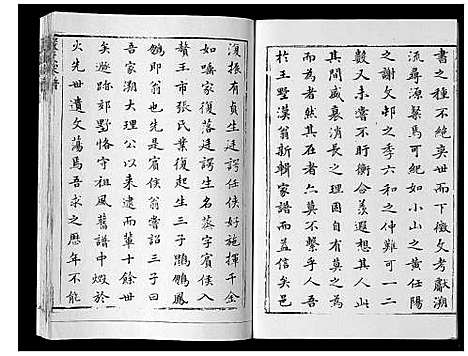 書之種不絕奕世而下徵文考獻溯
流尋源槩焉可紀如小山之黃任陽
之謝文邨之季六和之仲難可一二
數又未嘗不盱衡合羡遐想其人此
其間盛衰消長之理固自有莫之為
而為者然其在者亡莫不繫乎人吾
於王墅漢翁新輯家譜而益信矣邑
溪振有貞生廷諤任俠好施揮千金
如唾家復落廷諤生名蒸字賓侯入
贅王市張氏業復起生三子鵬鶴鳳
鶴即翁也先是賓侯翁嘗詔三子曰
吾家溯大理公以來逮而輩十餘世
矣遊跡郊墅恪守祖風舊譜中燬於
火先世遺文蕩焉吾求之歷年不能